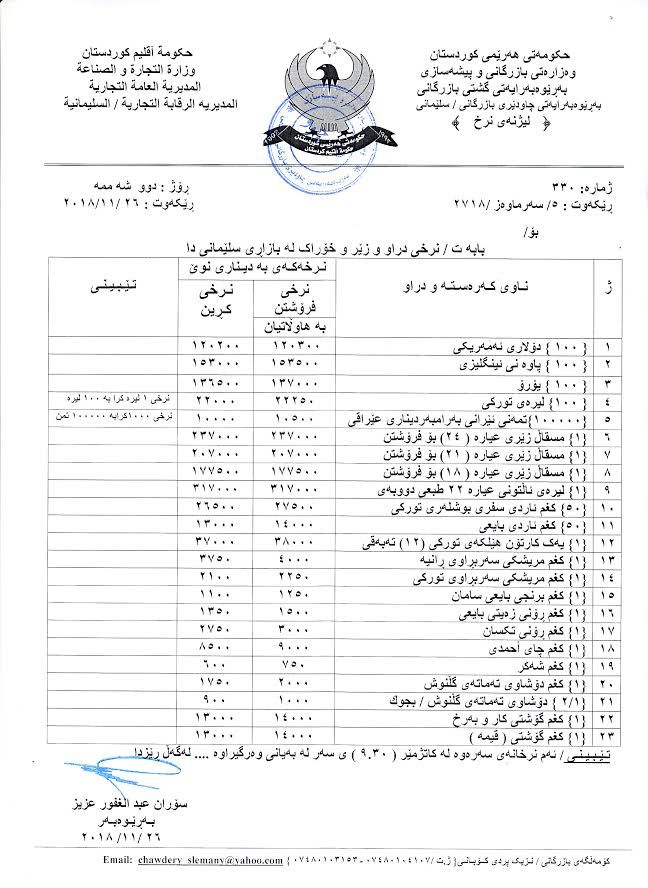 حكومەتى هەرێمى كوردستان
وەزارەتى بازرگانى و پیشەسازى
بەڕێوەبەرایەتى گشتى بازرگانى
بەڕێوەبەرایەتى چاودێرى بازرگانى / سلێمانى
﴿ لیژنەى نرخ ﴾
حكومة أقليم كوردستان
وزارة التجارة و الصناعة
المديرية العامة التجارية
المديريه الرقابة التجارية / السليمانية
حكومەتى هەرێمى كوردستان
حكومة أقليم كردستان
١٩٩٢
ژمارە: ٣٣٠
ڕێكەوت: ٥/ سەرماوەز /٢٧١٨
ڕۆژ: دوو شەممە
ڕێكەوت : ٢٦ /٢٠١٨/١١
بۆ/
بابەت / نرخى دراو و زێڕ و خۆراك لە بازاڕى سلێمانى دا
ژ ناوى كەرەستە و دراو نرخەكەى بە دینارى نوێ تێبینى
نرخى فرۆشتن بە هاوڵاتیان نرخى كڕین
١ {١٠٠} دۆلارى ئەمەریكى ١٢٠٣٠٠ ١٢٠٢٠٠
٢ {١٠٠} پاوەنى ئینگلیزى ١٥٣٥٠٠ ١٥٣٠٠٠
٣ {١٠٠} یۆرۆ ١٣٧٠٠٠ ١٣٦٥٠٠
٤ {١٠٠} لیرەى توركى ٢٢٢٥٠ ٢٢٠٠٠ نرخى ١ لیرە كرا بە ١٠٠ لیرە
٥ {١٠٠٠٠٠}تمەنى ئێرانى بەرامبەردینارى عێراقى ١٠٥٠٠ ١٠٠٠٠ نرخى ١٠٠٠كرابە ١٠٠٠٠٠ تمن
٦ {١} مسقاڵ زێڕى عیارە ( ٢٤) بۆ فرۆشتن ٢٣٧٠٠٠ ٢٣٧٠٠٠
٧ {١} مسقاڵ زێڕى عیارە ( ٢١) بۆ فرۆشتن ٢٠٧٠٠٠ ٢٠٧٠٠٠
٨ {١} مسقاڵ زێڕى عیارە ( ١٨) بۆ فرۆشتن ١٧٧٥٠٠ ١٧٧٥٠٠
٩ {١} لیرەى ئاڵتونى عیارە ٢٢ طبعى دووبەى ٣١٧٠٠٠ ٣١٧٠٠٠
١٠ {٥٠} كغم ئاردى سفرى بوشلەرى توركى ٢٧٥٠٠ ٢٦٥٠٠
١١ {٥٠} كغم ئاردى بایعى ١٤٠٠٠ ١٣٠٠٠
١٢ {١} یەك كارتۆن هێلكەى توركى (١٢) تەبەقى ٣٨٠٠٠ ٣٧٠٠٠
١٣ {١} كغم مریشكى سەربڕاوى ڕانیە ٤٠٠٠ ٣٧٥٠
١٤ {١} كغم مریشكى سەربڕاوى توركى ٢٢٥٠ ٢١٠٠
١٥ {١} كغم برنجى بایعى سامان ١٢٥٠ ١١٠٠
١٦ {١} كغم ڕۆنى زەیتى بایعى ١٥٠٠ ١٣٥٠
١٧ {١} كغم ڕۆنى تكسان ٣٠٠٠ ٢٧٥٠
١٨ {١} كغم چاى أحمدى ٩٠٠٠ ٨٥٠٠
١٩ {١} كغم شەكر ٧٥٠ ٦٠٠
٢٠ {١} كغم دۆشاوى تەماتەى گڵنوش ٢٠٠٠ ١٧٥٠
٢١ {٢/١} دۆشاوى تەماتەى گڵنوش / بجوك ١٠٠٠ ٩٠٠
٢٢ {١} كغم گۆشتى كار و بەرخ ١٤٠٠٠ ١٣٠٠٠
٢٣ {١} كغم گۆشتى ( قیمە ) ١٤٠٠٠ ١٣٠٠٠
تێبینى / ئەم نرخانەى سەرەوە لە كاتژمێر ( ٩.٣٠ ) ى سەر لە بەیانى وەرگیراوە .... لەگەڵ ڕێزدا
سۆران عبد الغفور عزیز
بەڕێوەبەر
٢٠١٨/١١/٢٦
كۆمەڵگەى بازرگانى / نزیك پردى كۆبانى{ ژ.ت /٠٧٤٨٠١٠٤١٠٧ - ٠٧٤٨٠١٠٣١٥٣ } Email: chawdery_slemany@yahoo.com